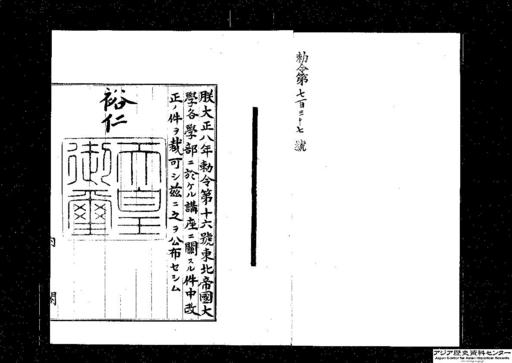 勅令第七百三十七號
朕大正八年勅令第十六號東北帝國大
學各學部ニ於ケル講座ニ關スル件中改
正ノ件ヲ裁可シ茲ニ之ヲ公布セシム
裕仁
天皇
御璽
内閣
アジア歴史資料センター
Japan Center for Asian Historical Records